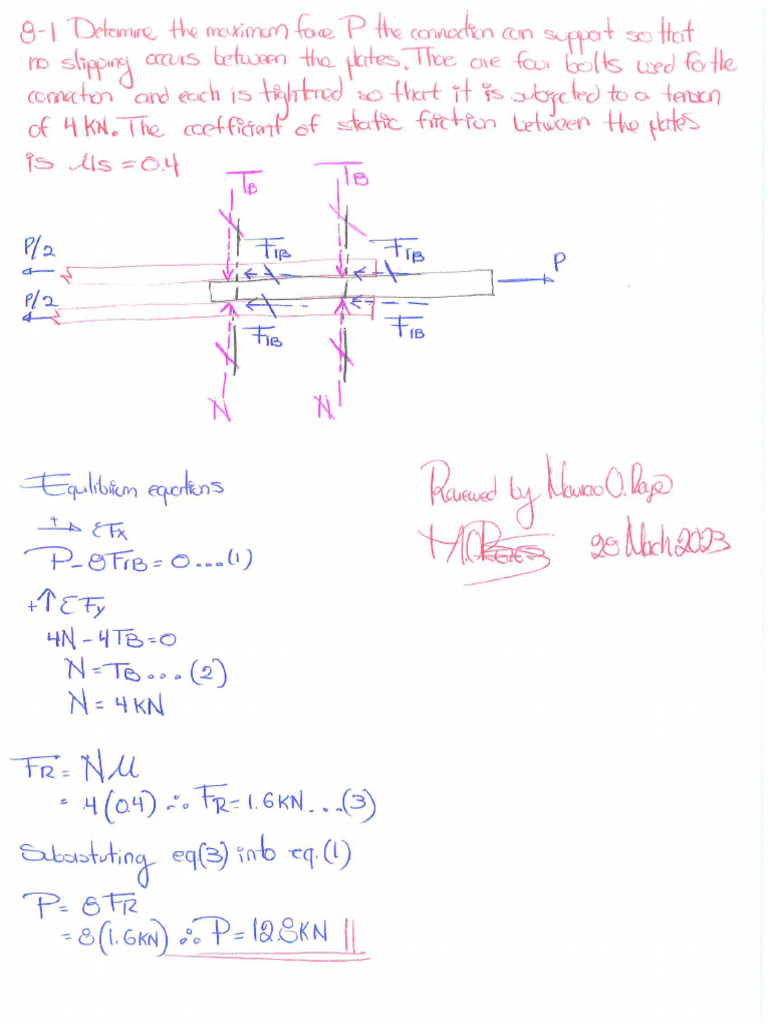 8-1 Determine the maximum force P the connection can support so that
no slipping occurs between the plates. There are four bolts used for the
connection and each is tightned so that it is subjected to a tension
of 4 KN. The coefficient of static friction between the plates
is Ms = 0.4
TB TB
P/2 FrB FrB P
P/2 FrB FrB
N N
Equilibium equations
+→ ΣFx
P - 8FrB = 0 ... (1)
+↑ ΣFy
4N - 4TB = 0
N = TB ... (2)
N = 4 KN
Reviewed by O.
28 March 2023
FR = Nμ
= 4(0.4) ∴ FR = 1.6KN ... (3)
Subsistuting eq(3) into eq.(1)
P = 8FR
= 8(1.6KN) ∴ P = 12.8KN